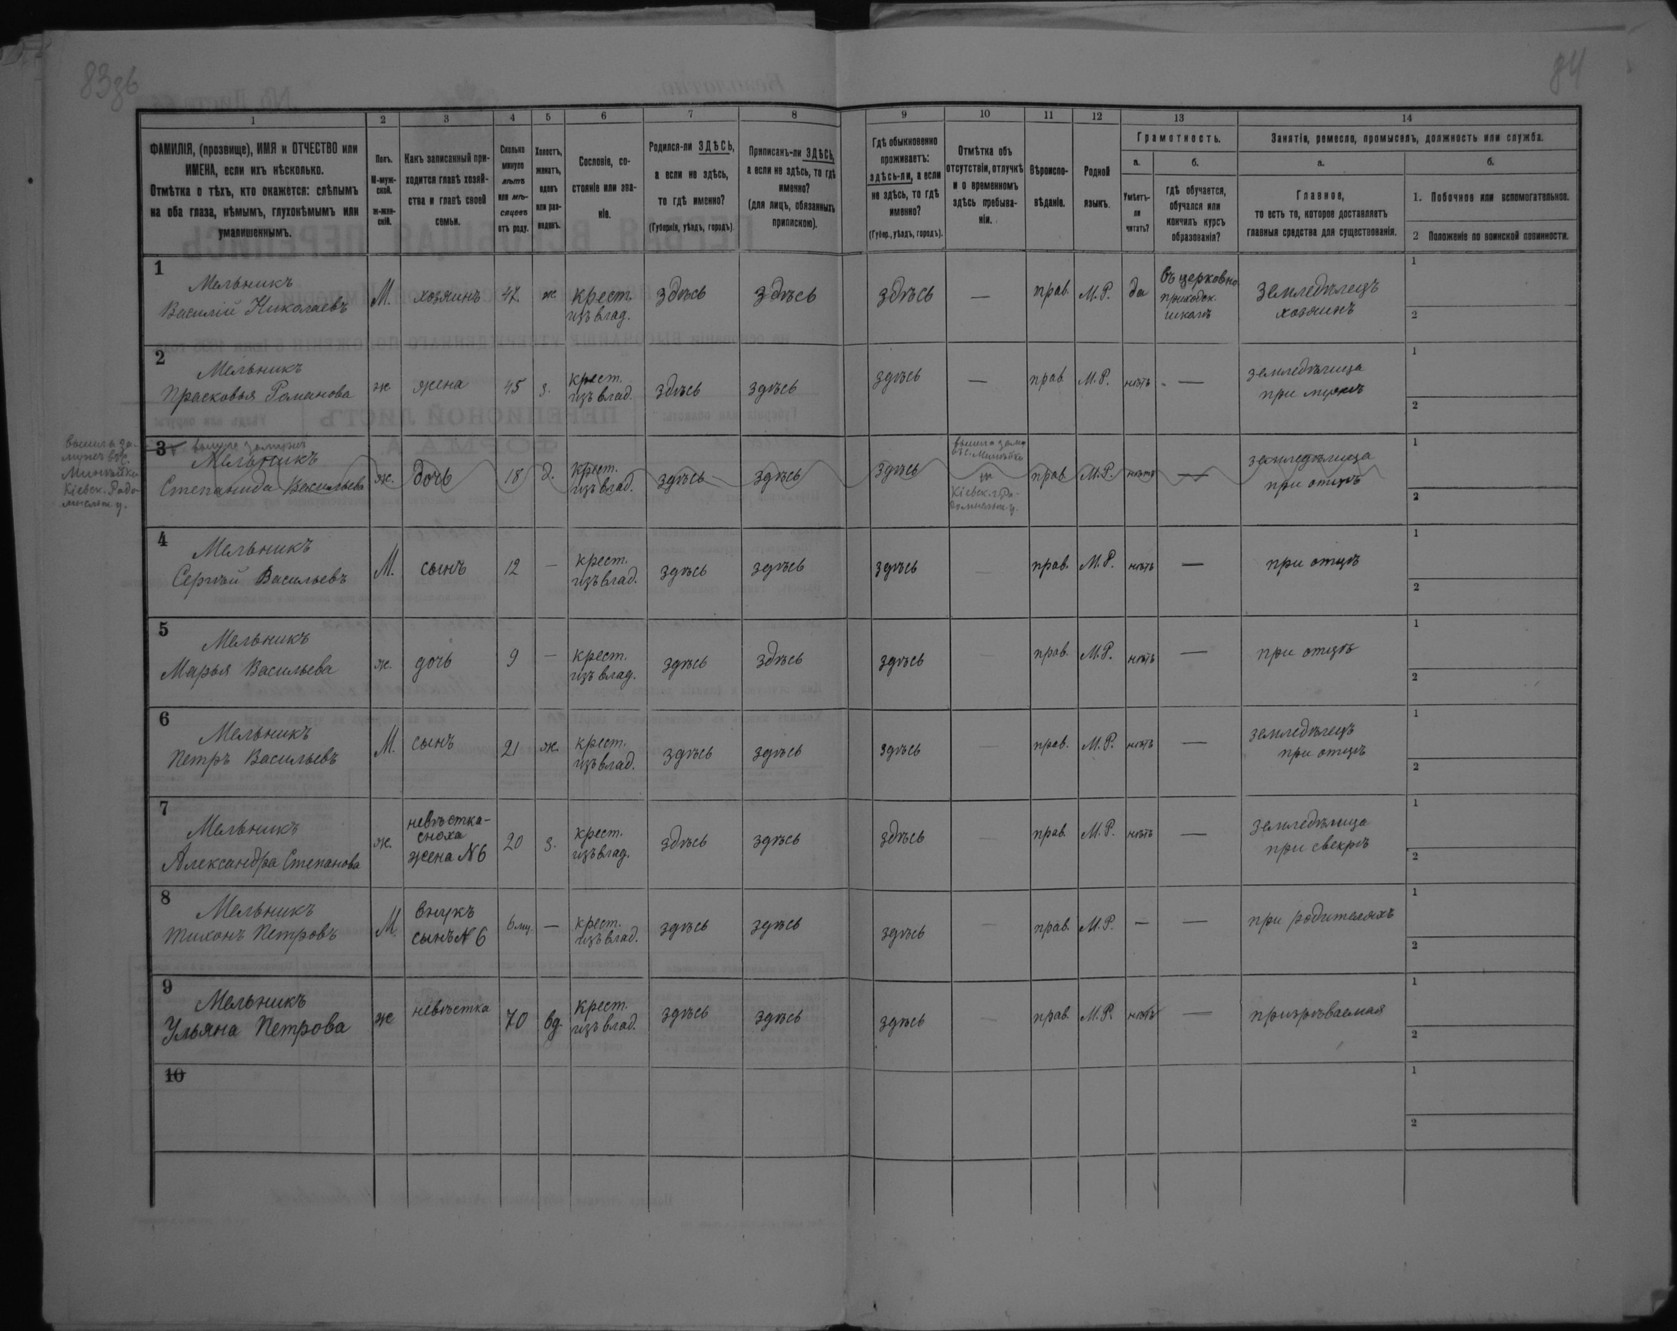 83зв
84
1
2
3
4
5
6
7
8
9
10
11
12
13
14
ФАМИЛІЯ, (прозвище), ИМЯ и ОТЧЕСТВО или
ИМЕНА, если ихъ нѣсколько.
Отмѣтка о тѣхъ, кто окажется: слѣпымъ
на оба глаза, нѣмымъ, глухонѣмымъ или
умалишеннымъ.
Полъ.
М-муж-
ской.
ж-жен-
скій.
Какъ записанный при-
ходится главѣ хозяй-
ства и главѣ своей
семьи.
Сколько
минуло
лѣтъ
или мѣ-
сяцевъ
отъ роду.
Холостъ,
женатъ,
вдовъ
или раз-
веденъ.
Сословіе, со-
стояніе или зва-
ніе.
Родился-ли ЗДѢСЬ,
а если не здѣсь,
то гдѣ именно?
(Губернія, уѣздъ, городъ).
Приписанъ-ли ЗДѢСЬ,
а если не здѣсь, то гдѣ
именно?
(для лицъ, обязанныхъ
припискою).
Гдѣ обыкновенно
проживаетъ:
здѣсь-ли, а если
не здѣсь, то гдѣ
именно?
(Губер., уѣздъ, городъ).
Отмѣтка объ
отсутствіи, отлучкѣ
и о временномъ
здѣсь пребыва-
ніи.
Вѣроиспо-
вѣданіе.
Родной
языкъ.
Грамотность.
а.
Умѣетъ-
ли
читать?
б.
гдѣ обучается,
обучался или
кончилъ курсъ
образованія?
Занятіе, ремесло, промыселъ, должность или служба.
а.
Главное,
то есть то, которое доставляетъ
главныя средства для существованія.
б.
1. Побочное или вспомогательное.
2 Положеніе по воинской повинности.
1
Мельникъ
Василій Николаевъ
М.
хозяинъ
47
ж
крест.
изъ влад.
здѣсь
здѣсь
здѣсь
—
прав.
М.Р.
да
въ церковно
приходск.
школѣ
земледѣлецъ
хозяинъ
1
2
2
Мельникъ
Прасковья Романова
ж
жена
45
з.
крест.
изъ влад.
здѣсь
здѣсь
здѣсь
—
прав.
М.Р.
нѣтъ
—
земледѣлица
при мужѣ
1
2
вышла за-
мужъ въ с.
3
вышла замужъ
Мельникъ
Степанида Васильева
ж.
дочь
18
д.
крест.
изъ влад.
здѣсь
здѣсь
здѣсь
вышла зам.
Кіевск. г. Ра-
прав.
М.Р.
нѣтъ
—
земледѣлица
при отцѣ
1
2
4
Мельникъ
Сергѣй Васильевъ
М.
сынъ
12
—
крест.
изъ влад.
здѣсь
здѣсь
здѣсь
—
прав.
М.Р.
нѣтъ
—
при отцѣ
1
2
5
Мельникъ
Марья Васильева
ж.
дочь
9
—
крест.
изъ влад.
здѣсь
здѣсь
здѣсь
—
прав.
М.Р.
нѣтъ
—
при отцѣ
1
2
6
Мельникъ
Петръ Васильевъ
М.
сынъ
21
ж.
крест.
изъ влад.
здѣсь
здѣсь
здѣсь
—
прав.
М.Р.
нѣтъ
—
земледѣлецъ
при отцѣ
1
2
7
Мельникъ
Александра Степанова
ж.
невѣстка-
сноха
жена N 6
20
з.
крест.
изъ влад.
здѣсь
здѣсь
здѣсь
—
прав.
М.Р.
нѣтъ
—
земледѣлица
при свекрѣ
1
2
8
Мельникъ
Тихонъ Петровъ
М
внукъ
сынъ N 6
6 мц
—
крест.
изъ влад.
здѣсь
здѣсь
здѣсь
—
прав.
М.Р.
—
—
при родителяхъ
1
2
9
Мельникъ
Ульяна Петрова
ж
невѣстка
70
вд.
крест.
изъ влад.
здѣсь
здѣсь
здѣсь
—
прав.
М.Р.
нѣтъ
—
призрѣваемая
1
2
10
1
2